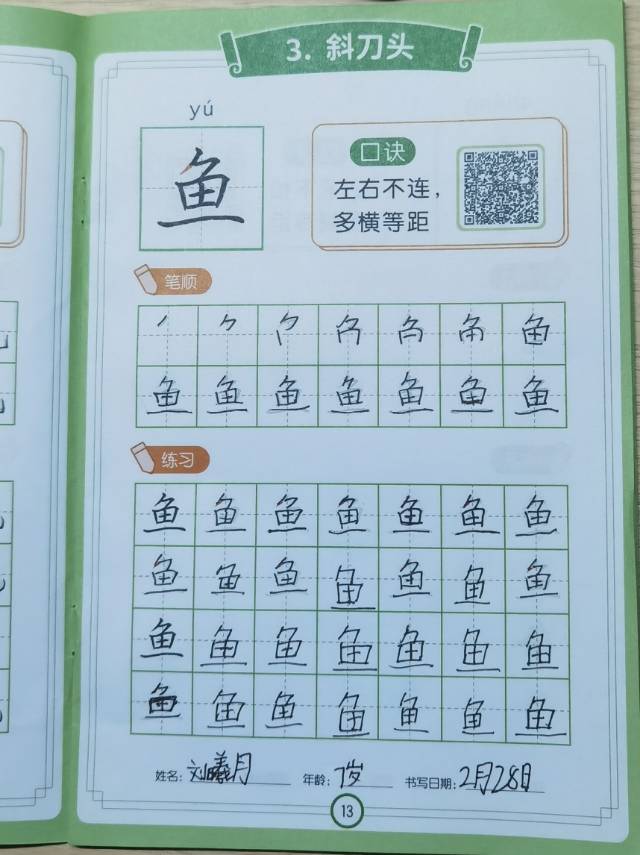 3. 斜刀头
yú
鱼
口诀
左右不连，
多横等距
笔顺
鱼 鱼 鱼 鱼 鱼 鱼 鱼
练习
鱼 鱼 鱼 鱼 鱼 鱼 鱼
鱼 鱼 鱼 鱼 鱼 鱼 鱼
鱼 鱼 鱼 鱼 鱼 鱼 鱼
鱼 鱼 鱼 鱼 鱼 鱼 鱼
姓名：刘曦月 年龄：7岁 书写日期：2月28日
13